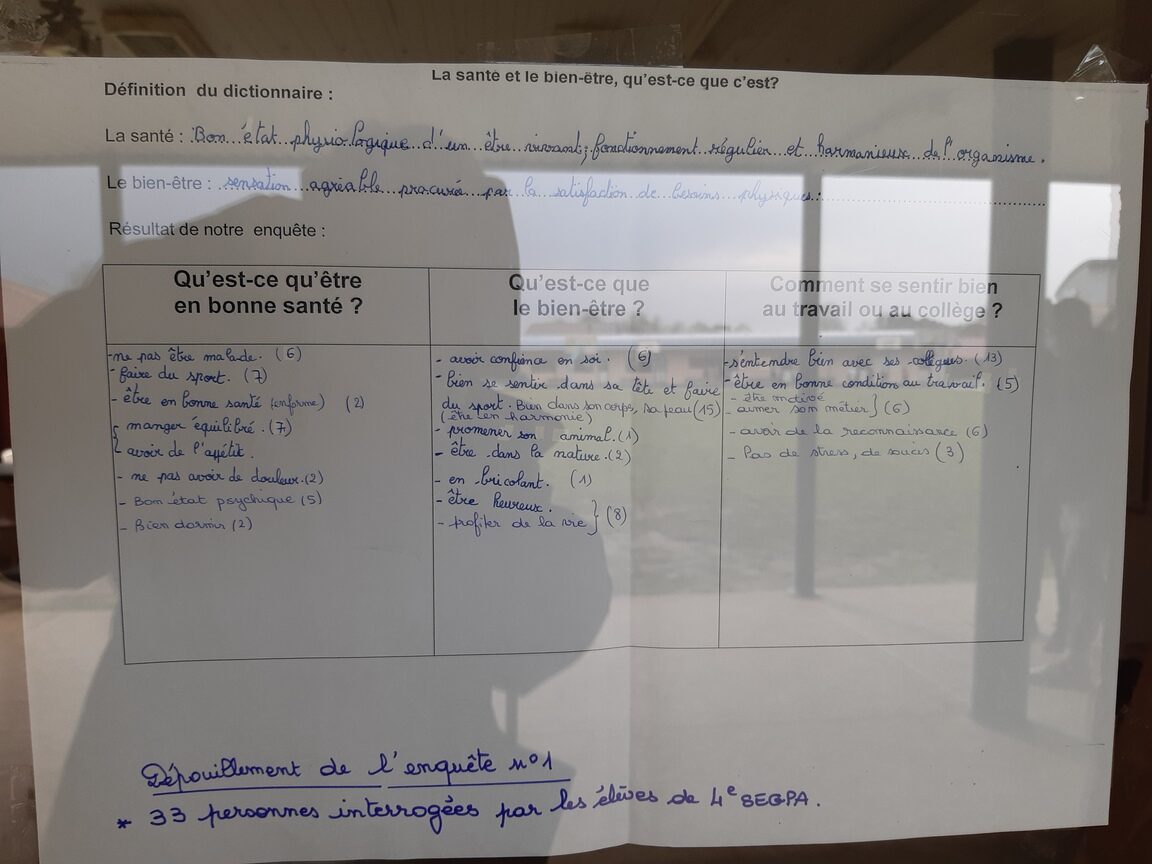 La santé et le bien-être, qu'est-ce que c'est?
Définition du dictionnaire :
La santé : Bon état physiologique d'un être vivant; fonctionnement régulier et harmonieux de l'organisme.
Le bien-être : sensation agréable procurée par la satisfaction de besoins physiques.
Résultat de notre enquête :
Qu'est-ce qu'être
en bonne santé ?
- ne pas être malade. (6)
- faire du sport. (7)
- être en bonne santé (en forme) (2)
- manger équilibré. (7)
- avoir de l'appétit.
- ne pas avoir de douleur. (2)
- Bon état psychique (5)
- Bien dormir (2)
Qu'est-ce que
le bien-être ?
- avoir confience en soi. (6)
- bien se sentir dans sa tête et faire
du sport. Bien dans son corps, sa peau (15)
(être en harmonie)
- promener son animal. (1)
- être dans la nature. (2)
- en bricolant. (1)
- être heureux.
- profiter de la vie } (8)
Comment se sentir bien
au travail ou au collège ?
- s'entendre bien avec ses collègues. (13)
- être en bonne condition au travail. (5)
- être motivé
- aimer son métier } (6)
- avoir de la reconnaissance (6)
- Pas de stress, de soucis (3)
Dépouillement de l'enquête n°1
* 33 personnes interrogées par les élèves de 4e SEGPA.